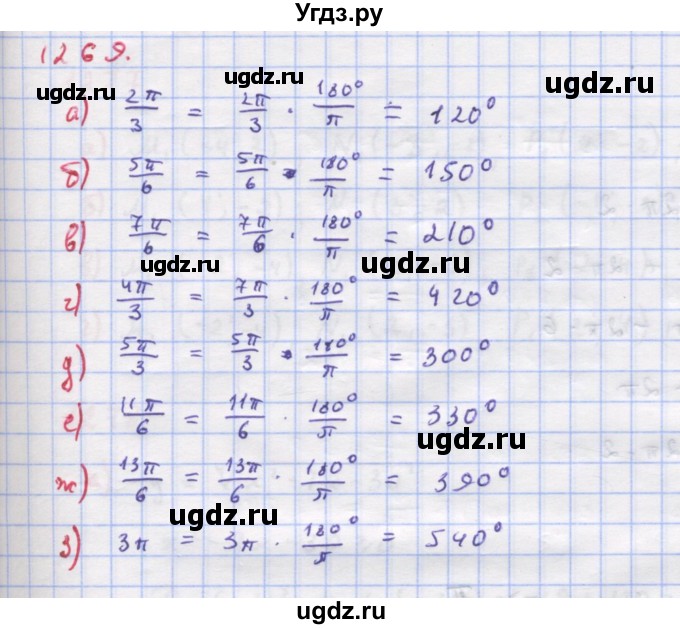 Угдз.ру
1269.
ugdz.ru ugdz.ru
а) 2π/3 = 2π/3 · 180°/π = 120°
б) 5π/6 = 5π/6 · 180°/π = 150°
в) 7π/6 = 7π/6 · 180°/π = 210°
ugdz.ru ugdz.ru
г) 4π/3 = 7π/3 · 180°/π = 420°
д) 5π/3 = 5π/3 · 180°/π = 300°
е) 11π/6 = 11π/6 · 180°/π = 330°
ugdz.ru
ж) 13π/6 = 13π/6 · 180°/π = 390°
ugdz.ru
з) 3π = 3π · 180°/π = 540°
ugdz.ru
ugdz.ru